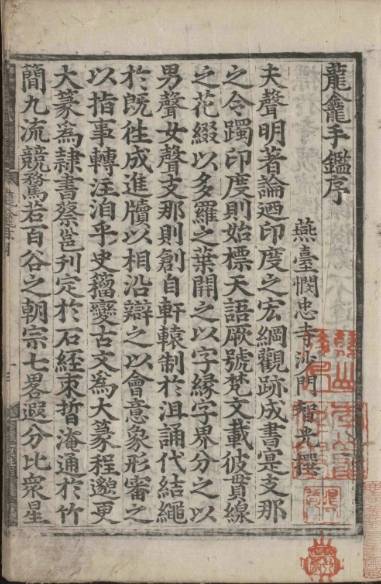 龍龕手鑑序
燕臺憫忠寺沙門智光撰
夫聲明著論迺印度之宏綱觀跡成書寔支那
之令躅印度則始標天語厥號梵文載彼貫線
之花綴以多羅之葉開之以字緣字界分之以
男聲女聲支那則創自軒轅制於沮誦代結繩
於旣徃成進牘以相沿辯之以會意象形審之
以指事轉注洎乎史籕變古文為大篆程邈更
大篆為隷書蔡邕刋定於石経束晳淹通於竹
簡九流競騖若百谷之朝宗七畧遐分比衆星